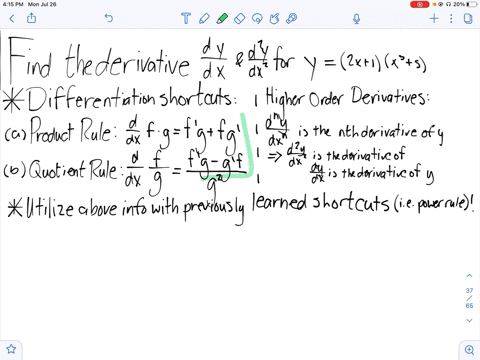 4:15 PM Mon Jul 26
20%
Find the derivative dy/dx & d²y/dx² for y = (2x+1)(x³+5)
* Differentiation shortcuts: | Higher Order Derivatives:
(a) Product Rule: d/dx f·g = f'g + fg' | dⁿy/dxⁿ is the nth derivative of y
(b) Quotient Rule: d/dx f/g = (f'g - g'f)/g² | ⇒ d²y/dx² is the derivative of
dy/dx is the derivative of y
* Utilize above info with previously learned shortcuts (i.e. power rule)!
37
/
65